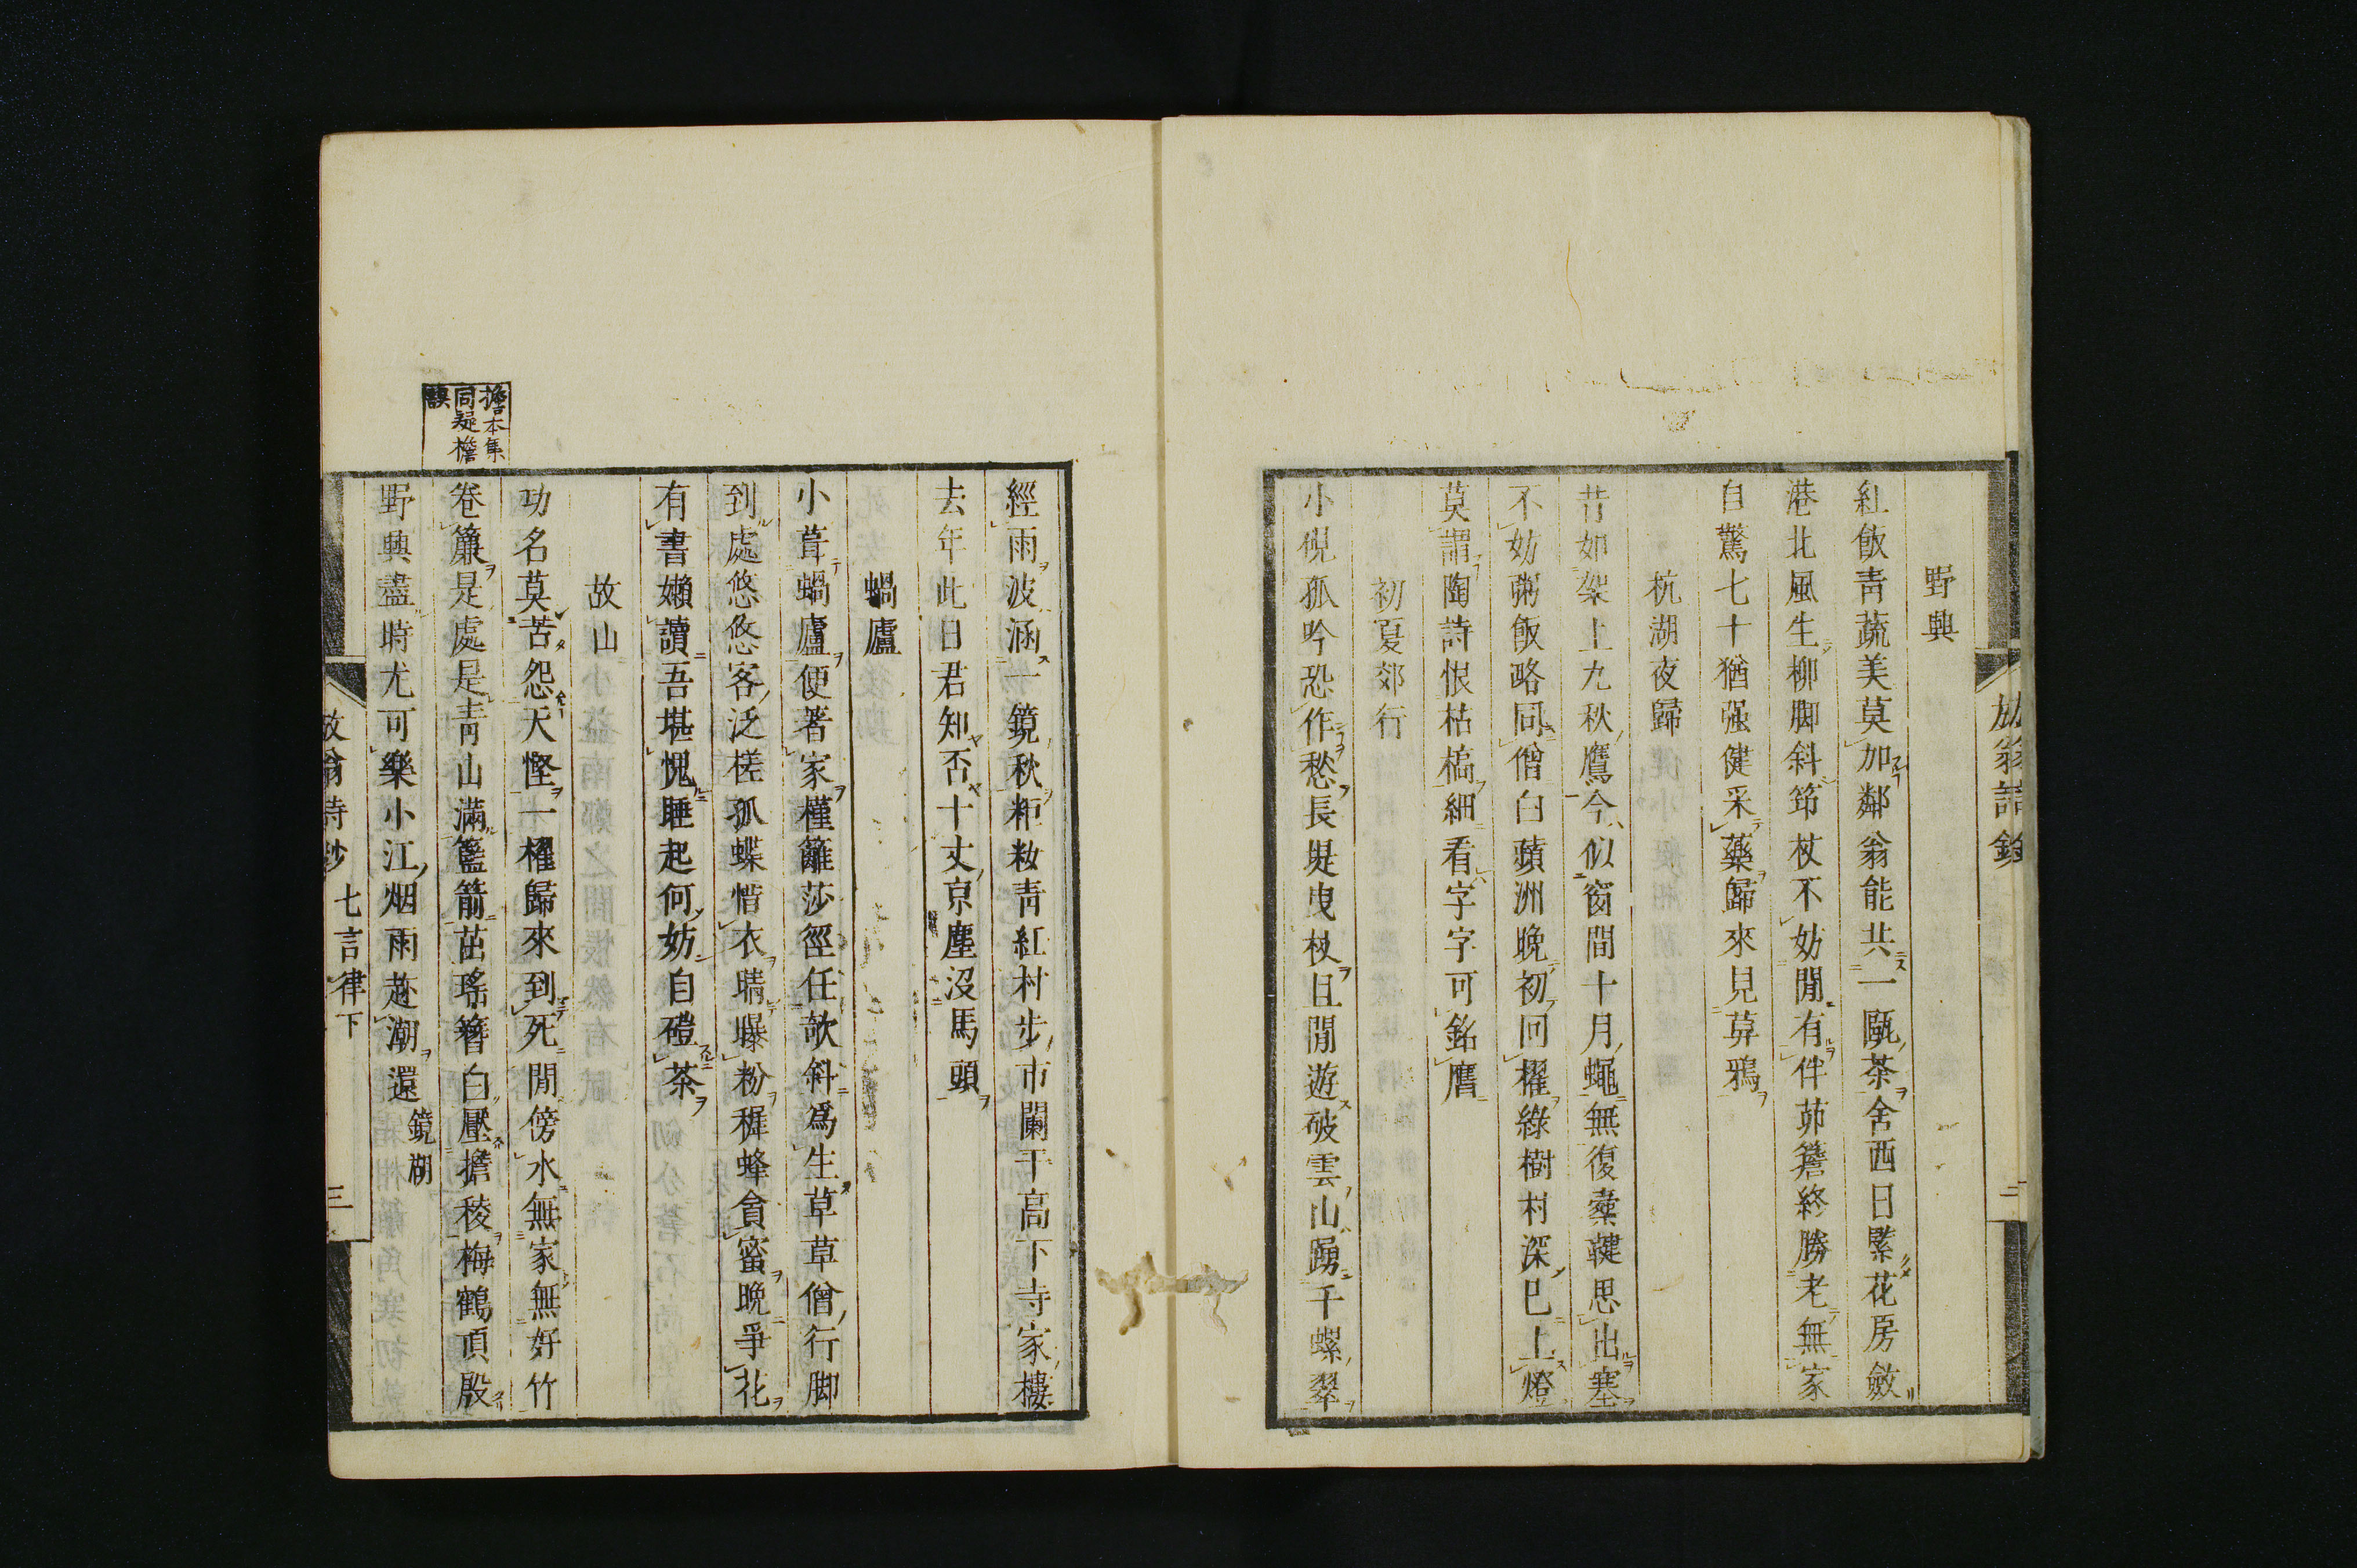 野興
紅飯靑蔬美莫加鄰翁能共一甌茶舍西日緊花房斂
港北風生柳脚斜筇杖不妨閒有伴茆簷終勝老無家
自驚七十猶强健采藥歸來見莫鴉
杭湖夜歸
昔如架上九秋鷹今似窗間十月蠅無復櫜鞬思出塞
不妨粥飯略同僧白蘋洲晚初回櫂綠樹村深已上燈
莫謂陶詩恨枯槁細看字字可銘膺
初夏郊行
小倪孤吟恐作愁長堤曳杖且閒遊破雲山踴千螺翠
經雨波涵一鏡秋粔籹靑紅村步市闌干高下寺家樓
去年此日君知否十丈京塵沒馬頭
蝸廬
小葺蝸廬便著家槿籬莎徑任欹斜爲生草草僧行脚
到處悠悠客泛槎孤蝶惜衣晴曝粉穉蜂貪蜜晩爭花
有書嬾讀吾堪愧睡起何妨自磑茶
故山
功名莫苦怨天慳一櫂歸來到死閒傍水無家無好竹
卷簾是處是靑山滿籃箭茁瑤簪白壓擔稜梅鶴頂殷
野興盡時尤可樂小江烟雨趁潮還 鏡湖
擔本集
同疑檐
誤
放翁詩鈔 七言律下 三